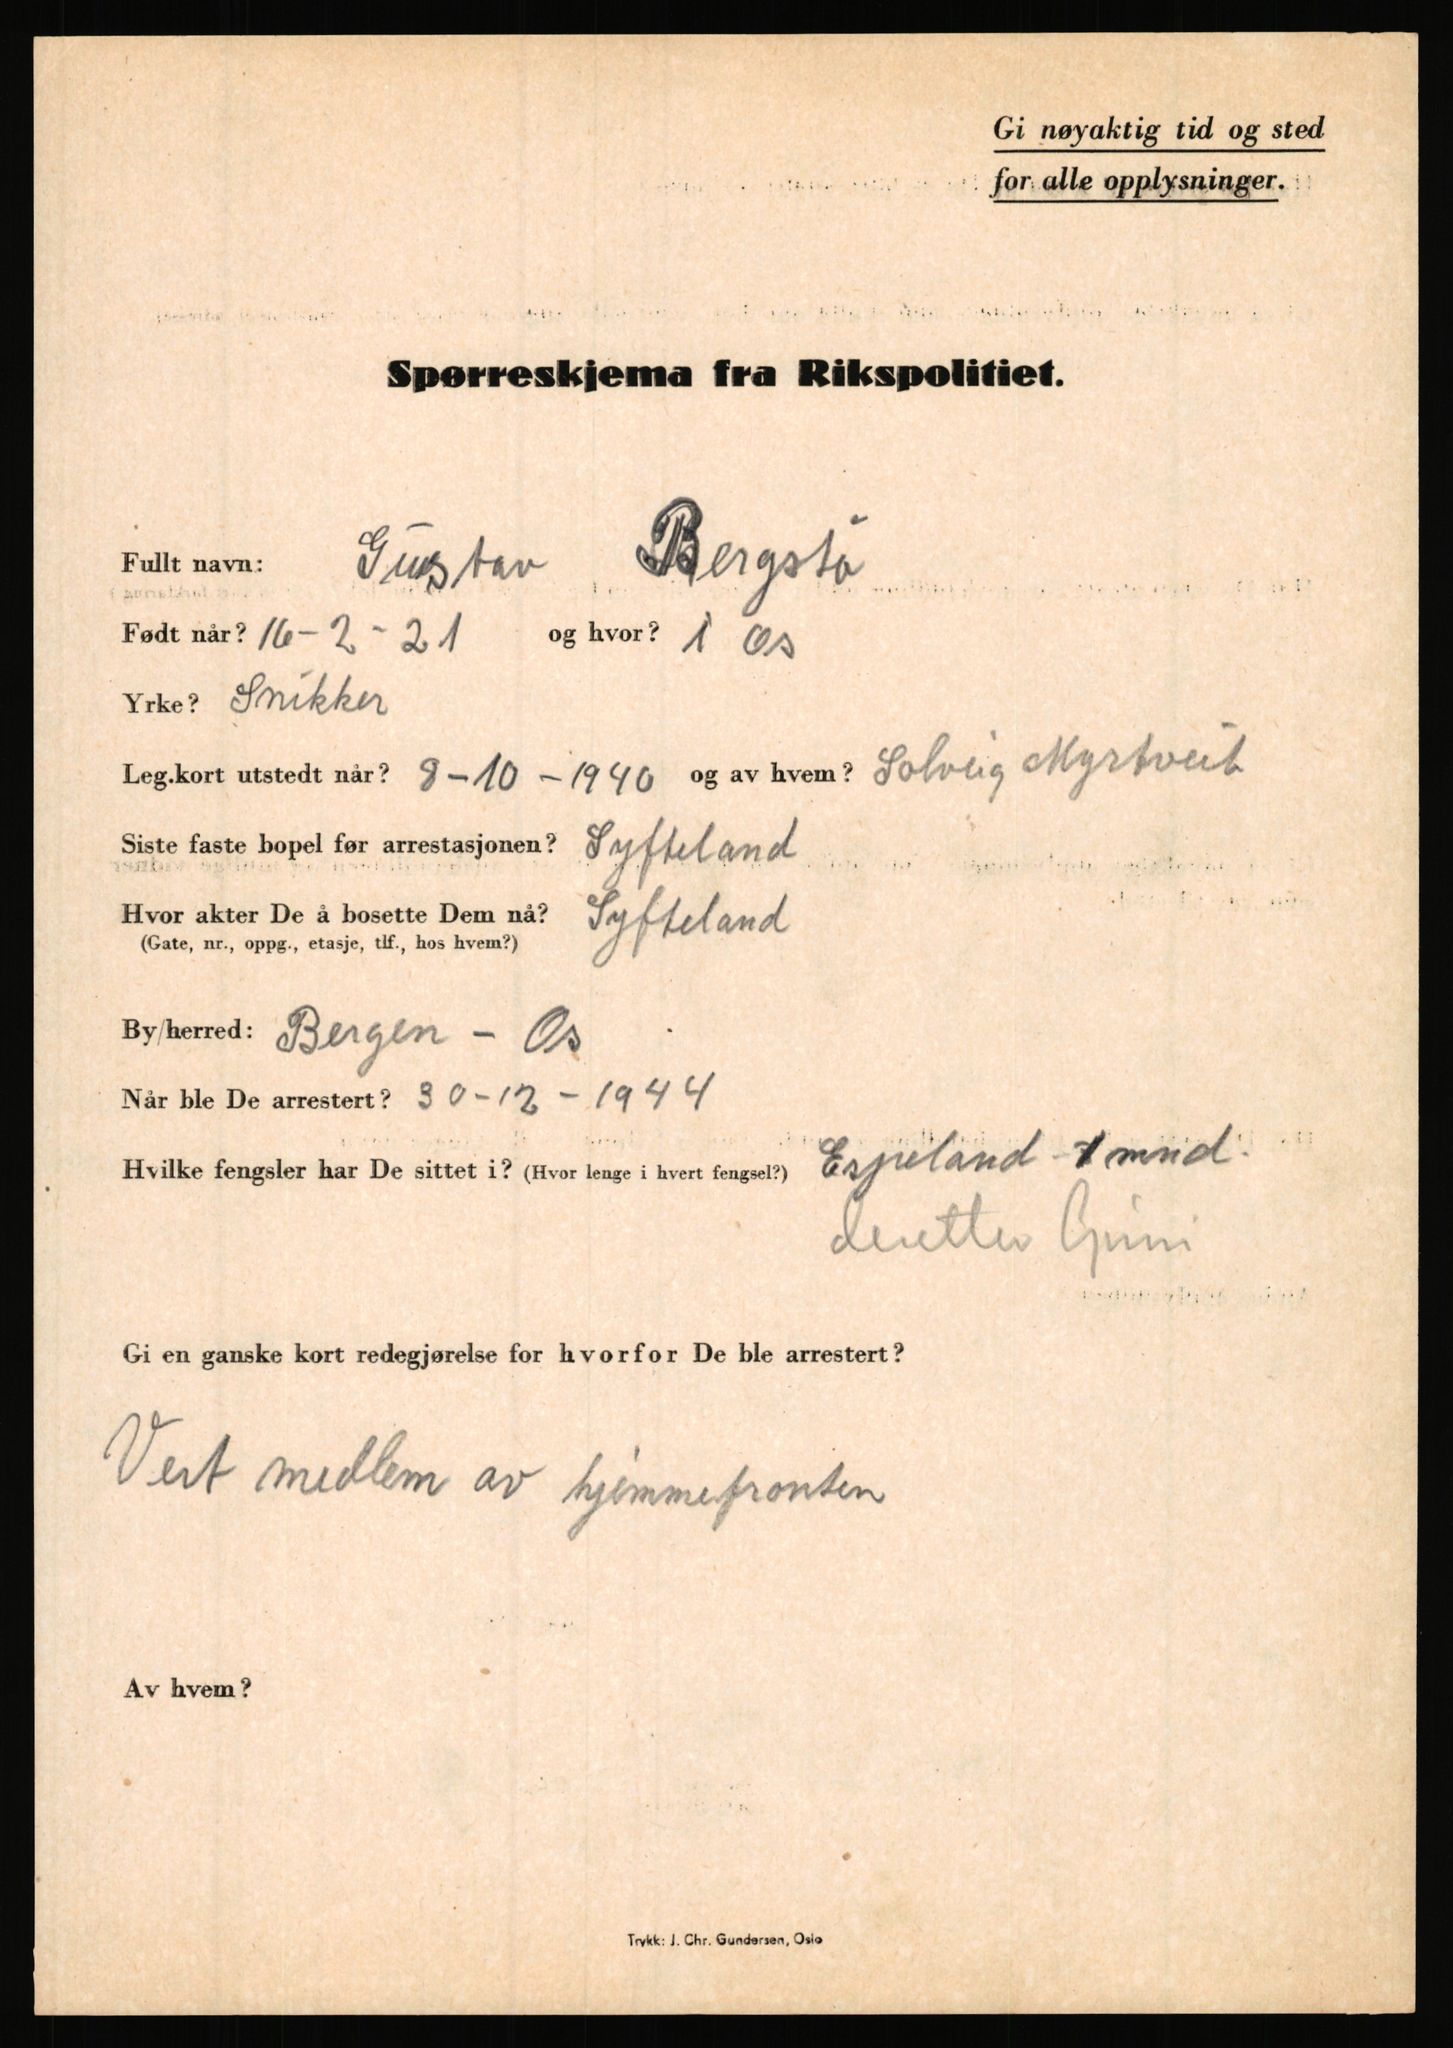 Gi nøyaktig tid og sted
for alle opplysninger.
Spørreskjema fra Rikspolitiet.
Fullt navn: Gustav Bergstö
Født når? 16-2-21 og hvor? i Os
Yrke? Snikker
Leg.kort utstedt når? 8-10-1940 og av hvem? Solveig Myrtveit
Siste faste bopel før arrestasjonen? Syfteland
Hvor akter De å bosette Dem nå? Syfteland
(Gate, nr., oppg., etasje, tlf., hos hvem?)
By/herred: Bergen - Os
Når ble De arrestert? 30-12-1944
Hvilke fengsler har De sittet i? (Hvor lenge i hvert fengsel?) Espeland - 1 mnd.
deretter Grini
Gi en ganske kort redegjørelse for hvorfor De ble arrestert?
Vert medlem av hjemmefronten
Av hvem?
Trykk: J. Chr. Gundersen, Oslo